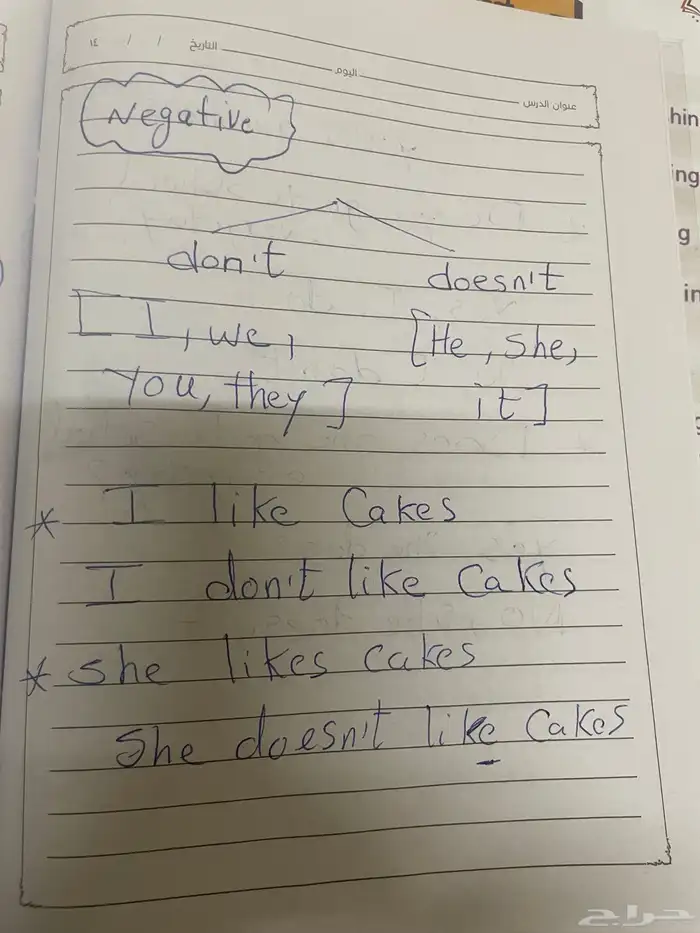 عنوان الدرس اليوم التاريخ / / ١٤
Negative
don't doesn't
[I, we, [He, she,
you, they] it]
* I like Cakes
I don't like Cakes
* she likes cakes
She doesn't like Cakes
hin
ing
g
in
حراج